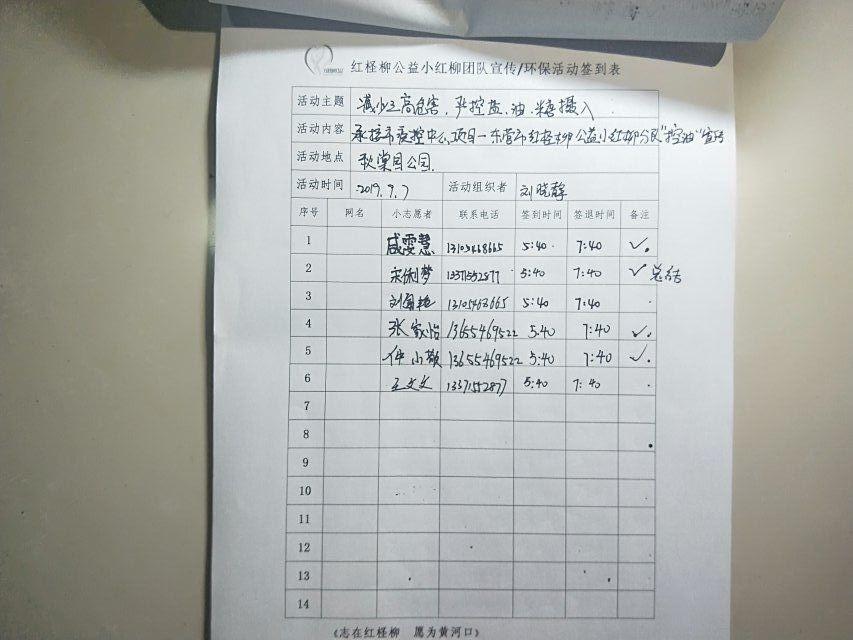 红柽柳公益小红柳团队宣传/环保活动签到表
活动主题 减少三高危害,严控盐、油、糖摄入
活动内容 承接市疾控中心项目一东营市红柽柳公益小红柳分队"控油"宣传
活动地点 秋棠园公园.
活动时间 2019.9.7 活动组织者 刘晓静
序号 网名 小志愿者 联系电话 签到时间 签退时间 备注
1 戚雯慧 13105468665 5:40 7:40 ✓.
2 宋俐梦 13371552877 5:40 7:40 ✓总结
3 13105463665 5:40 7:40
4 张家怡 13655469522 5:40 7:40 ✓.
5 仲小敏 13655469522 5:40 7:40 ✓.
6 王文文 13371552877 5:40 7:40
7
8
9
10
11
12
13
14
(志在红柽柳 愿为黄河口)